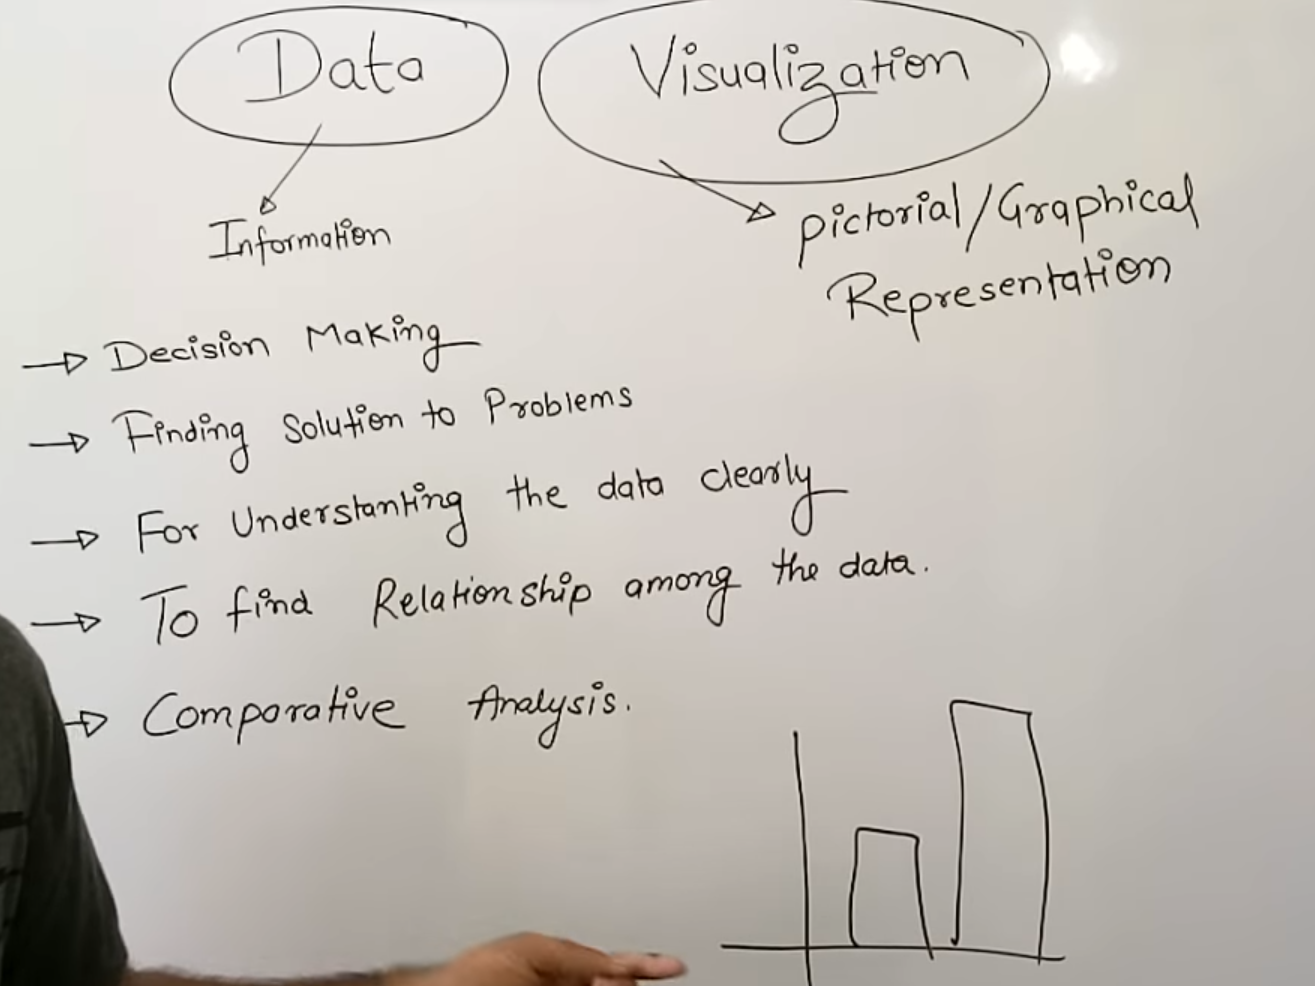 Data Visualization
Information
Pictorial/Graphical
Representation
→ Decision Making
→ Finding Solution to Problems
→ For Understanting the data clearly
→ To find Relationship among the data.
→ Comparative Analysis.